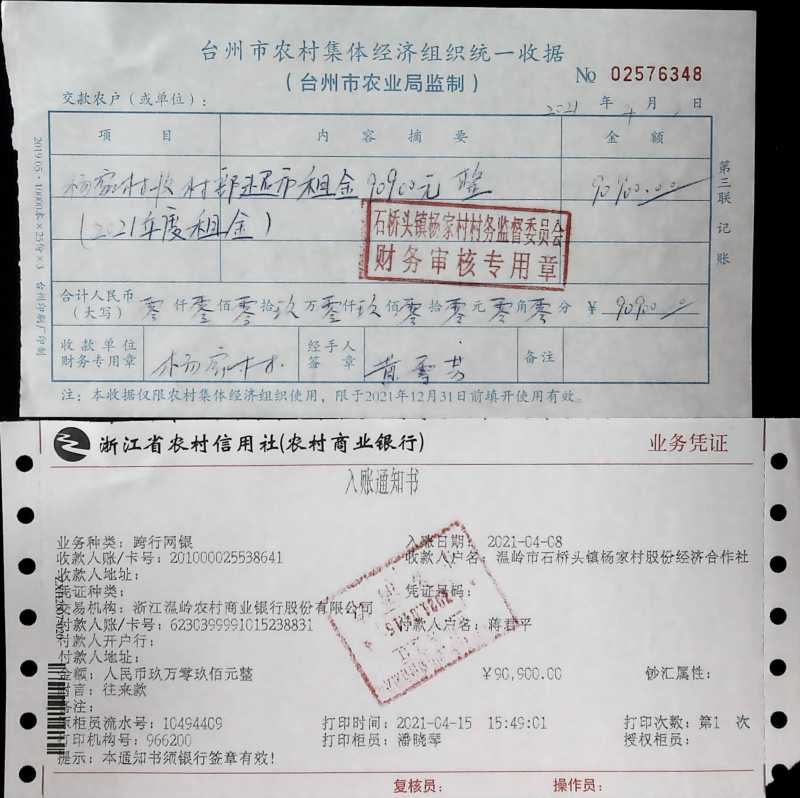 台州市农村集体经济组织统一收据
（台州市农业局监制）
No 02576348
交款农户（或单位）： 2021 年 4 月 日
项 目 内 容 摘 要 金 额
杨家村收村部超市租金90900元整 90900.00
(2021年度租金)
石桥头镇杨家村村务监督委员会
财务审核专用章
合计人民币（大写） 零仟零佰零拾玖万零仟玖佰零拾零元零角零分 ￥ 90900.00
收款单位财务专用章 杨家村 经手人签章 备注
注：本收据仅限农村集体经济组织使用，限于2021年12月31日前填开使用有效。
第三联 记账
2019.05·10000本×25份×3 台州印刷厂印制
浙江省农村信用社(农村商业银行) 业务凭证
入账通知书
业务种类：跨行网银 入账日期：2021-04-08
收款人账/卡号：201000025538641 收款人户名：温岭市石桥头镇杨家村股份经济合作社
收款人地址：
凭证种类： 凭证号码：
交易机构：浙江温岭农村商业银行股份有限公司
付款人账/卡号：6230399991015238831 付款人户名：蒋君平
付款人开户行：
付款人地址：
金额：人民币玖万零玖佰元整 ￥90,900.00 钞汇属性：
附言：往来款
备注：
柜员流水号：10494409 打印时间：2021-04-15 15:49:01 打印次数：第1 次
打印机构号：966200 打印柜员：潘晓琴 授权柜员：
提示：本通知书须银行签章有效！
复核员： 操作员：